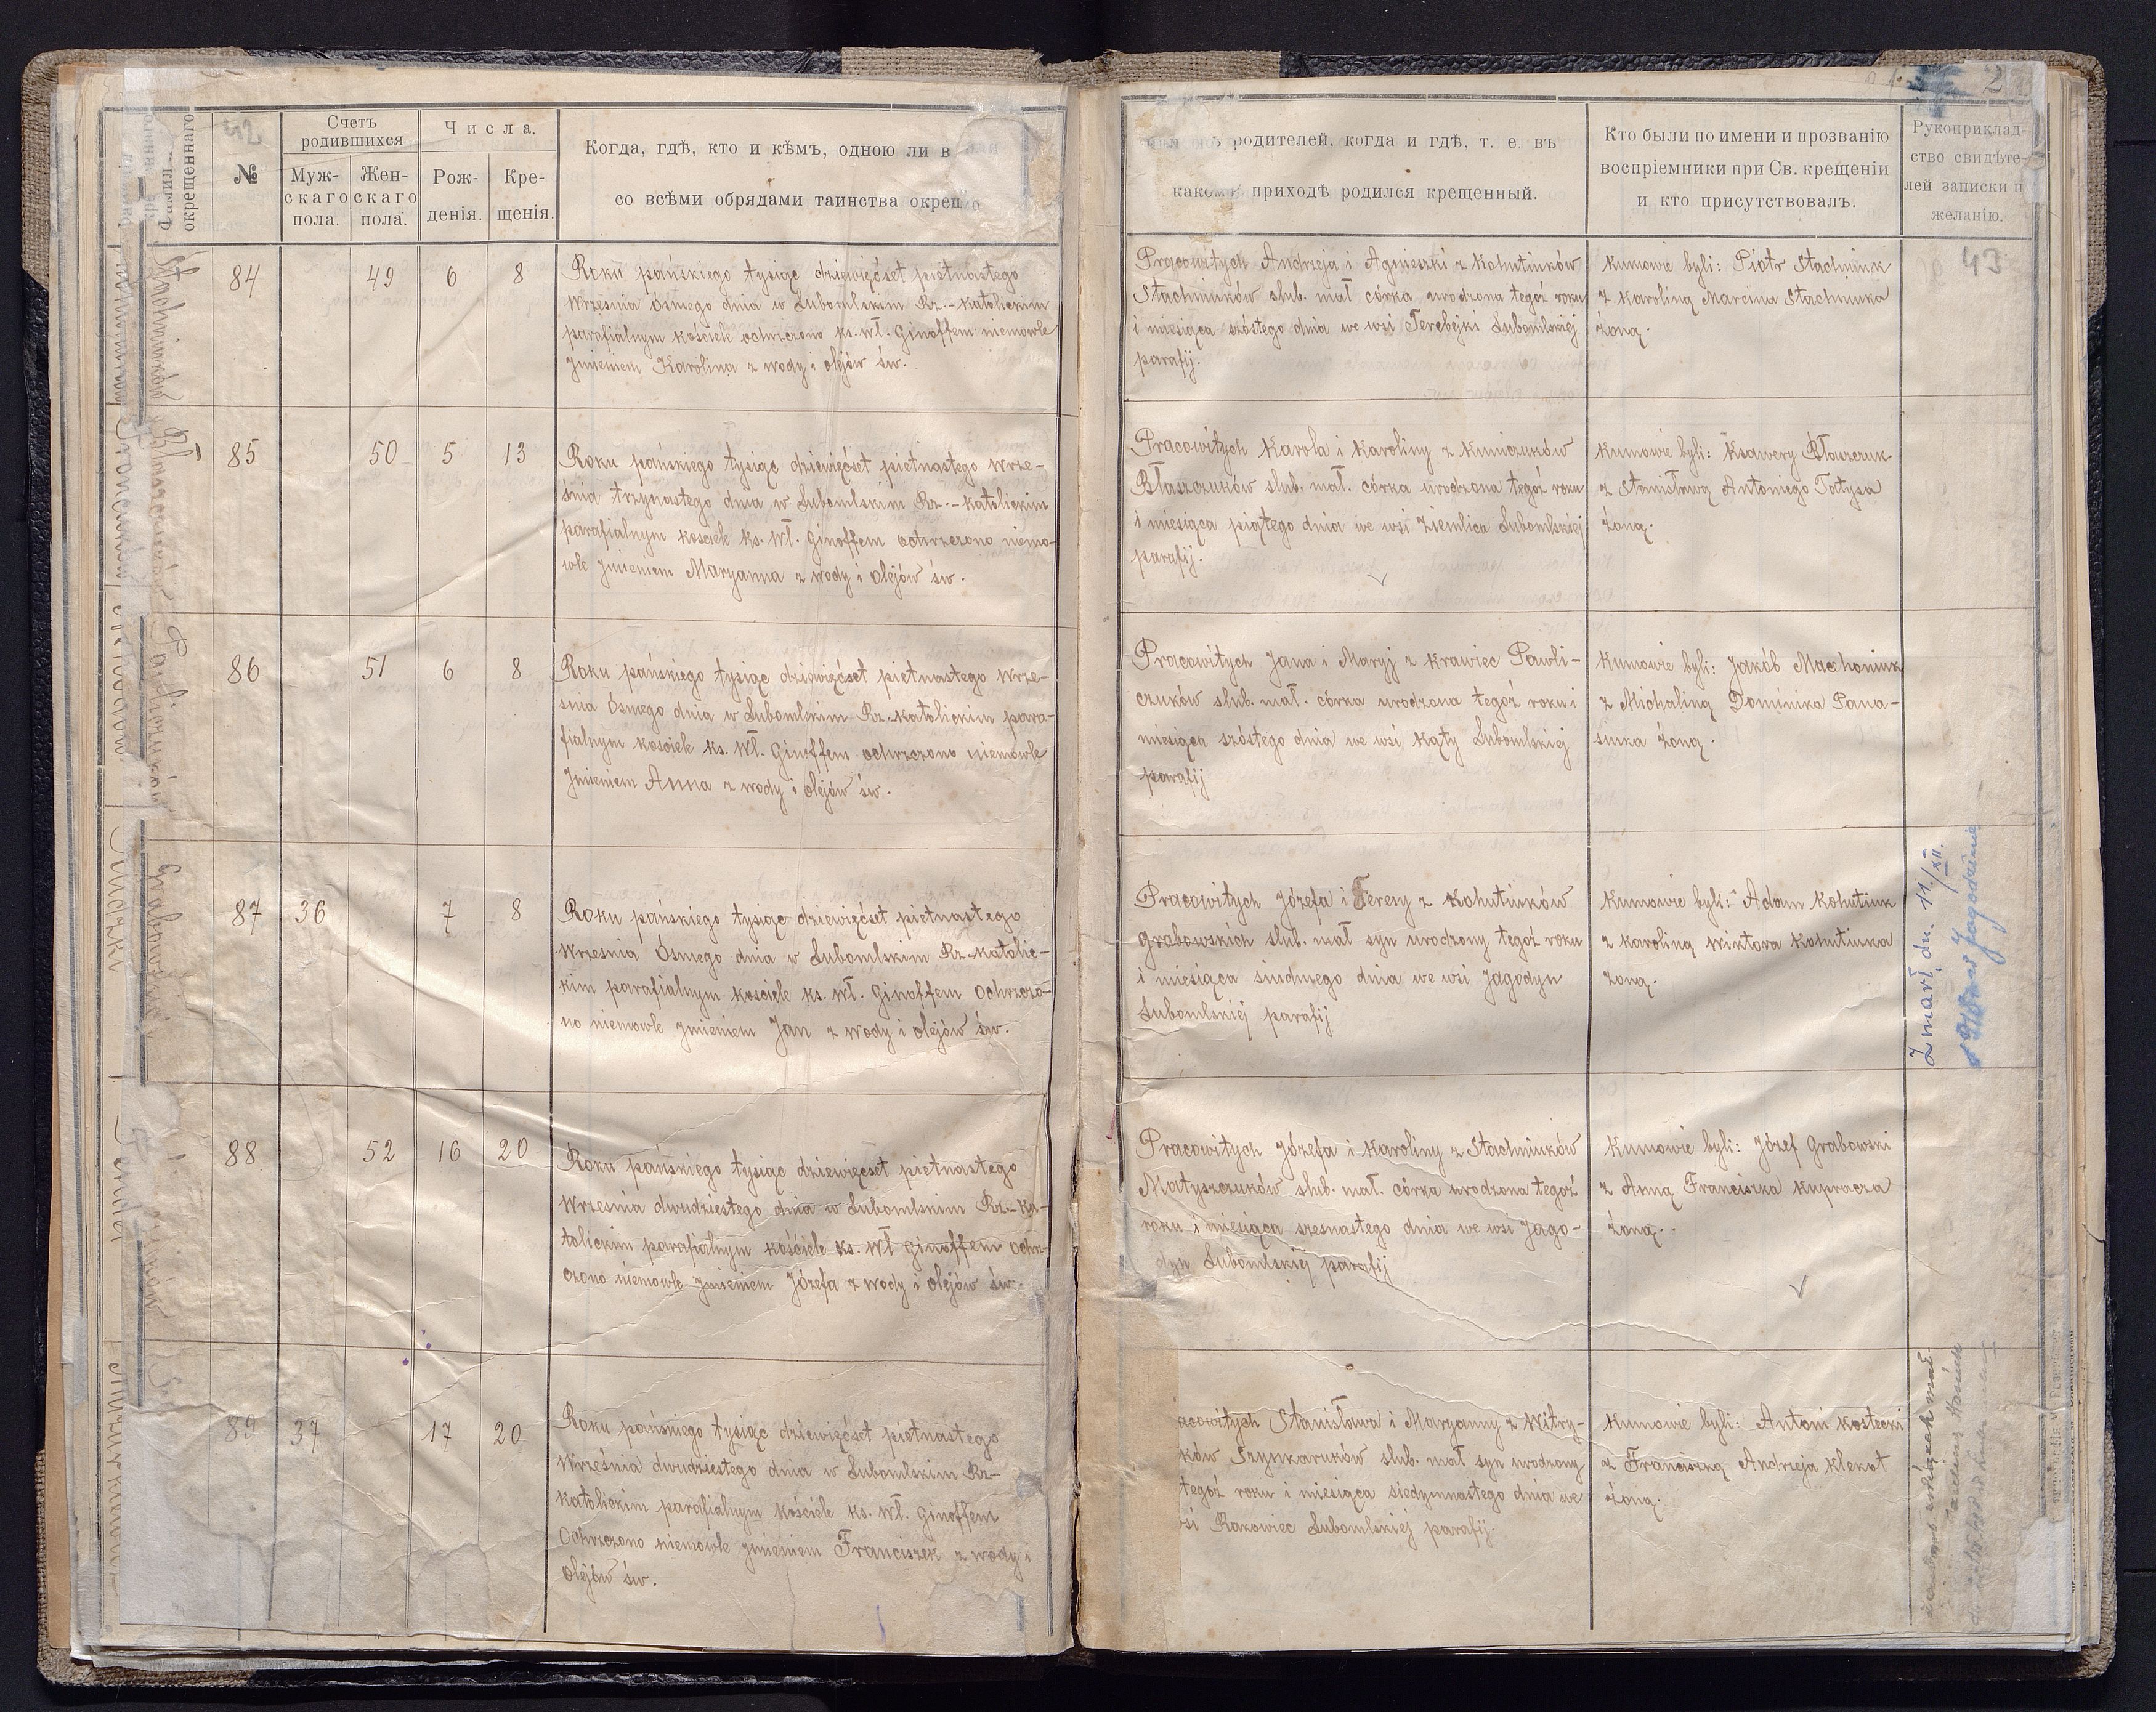 42
Фамил
окрещеннаго
№
Счетъ родившихся
Муж-
скаго
пола.
Жен-
скаго
пола.
Числа.
Рож-
денія.
Кре-
щенія.
Когда, гдѣ, кто и кѣмъ, одною ли в
со всѣми обрядами таинства окрещ
родителей, когда и гдѣ, т. е. въ
какомъ приходѣ родился крещенный.
Кто были по имени и прозванію
воспріемники при Св. крещеніи
и кто присутствовалъ.
Рукоприклад-
ство свидѣте-
лей записки п
желанію.
2
43
Stachniuków
84 49 6 8
Roku pańskiego tysiąc dziewięćset piętnastego
Września Ósmego dnia w Lubomlskim Rz.-Katolickim
parafialnym kościele ochrzczono ks. Wł. Ginoffem niemowle
Jmieniem Karolina z wody i olejów św.
Pracowitych Andrzeja i Agnieszki z Kohutiuków
Stachniuków slub. mał córka urodzona tegoż roku
i miesiąca szóstego dnia we wsi Terebejki Lubomlskiej
parafij.
Kumowie byli: Piotr Stachniuk
z Karoliną Marcina Stachniuka
żoną.
Błaszczuków
85 50 5 13
Roku pańskiego tysiąc dziewięćset piętnastego Wrze-
śnia trzynastego dnia w Lubomlskim Rz.-Katolickim
parafialnym kościele ks. Wł. Ginoffem ochrzczono niemo-
wle Jmieniem Maryanna z wody i olejów św.
Pracowitych Karola i Karoliny z Kuniczuków
Błaszczuków slub. mał. córka urodzona tegoż roku
i miesiąca piątego dnia we wsi Ziemlica Lubomlskiej
parafij.
Kumowie byli: Ksawery Błaszczuk
z Stanisławą Antoniego Tatysa
żoną.
Pawliczuków
86 51 6 8
Roku pańskiego tysiąc dziewięćset piętnastego Wrze-
śnia Ósmego dnia w Lubomlskim Rz.-Katolickim para-
fialnym kościele ks. Wł. Ginoffem ochrzczono niemowle
Jmieniem Anna z wody i olejów św.
Pracowitych Jana i Maryj z Krawiec Pawli-
czuków slub. mał. córka urodzona tegoż roku i
miesiąca szóstego dnia we wsi Kąty Lubomlskiej
parafij
Kumowie byli: Jakób Machoniuk
z Michaliną Dominika Pana-
siuka żoną.
Grabowskich
87 36 7 8
Roku pańskiego tysiąc dziewięćset piętnastego
Września Ósmego dnia w Lubomlskim Rz.-Katolic-
kim parafialnym kościele ks. Wł. Ginoffem ochrzczo-
no niemowle Jmieniem Jan z wody i olejów św.
Pracowitych Józefa i Teresy z Kohutiuków
Grabowskich slub. mał syn urodzony tegoż roku
i miesiąca siudmego dnia we wsi Jagodyn
Lubomlskiej parafij
Kumowie byli: Adam Kohutiuk
z Karoliną Wiktora Kohutiuka
żoną.
Zmarł dn. 11/XII.
Jagodzinie
88 52 16 20
Roku pańskiego tysiąc dziewięcset piętnastego
Września dwudziestego dnia w Lubomlskim Rz.-Ka-
tolickim parafialnym kościele ks. Wł Ginoffem ochrz-
czono niemowle Jmieniem Józefa z wody i olejów św.
Pracowitych Józefa i Karoliny z Stachniuków
Matyszczuków slub. mał. córka urodzona tegoż
roku i miesiąca szesnastego dnia we wsi Jago-
dyn Lubomlskiej parafij
Kumowie byli: Józef Grabowski
z Anną Franciszka Kupracza
żoną.
89 37 17 20
Roku pańskiego tysiąc dziewięćset piętnastego
Września dwudziestego dnia w Lubomlskim Rz-
Katolickim parafialnym kościele ks. Wł. Ginoffem
Ochrzczono niemowle Jmieniem Franciszek z wody i
olejów św.
acowitych Stanisława i Maryanny z Witry-
ków Szynkaruków slub. mał syn urodzony
tegoż roku i miesiąca siedymnastego dnia we
si Rakowiec Lubomlskiej parafij.
Kumowie byli: Antoni Kostecki
z Franciszką Andrzeja Klekot
żoną.